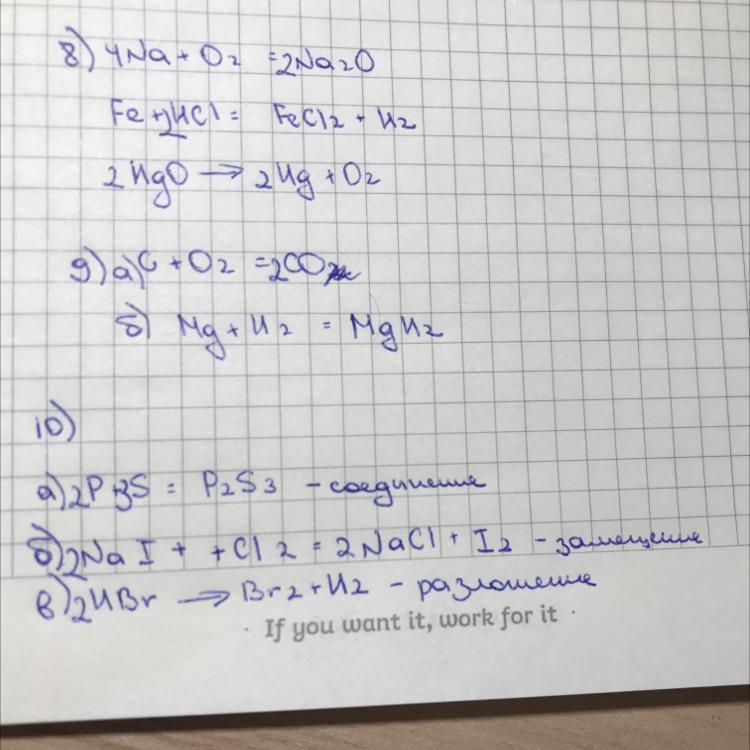 8) 4Na + O2 = 2Na2O
Fe + 2HCl = FeCl2 + H2
2HgO → 2Hg + O2
9) а) C + O2 = 2CO
б) Mg + H2 = MgH2
10)
а) 2P + 3S = P2S3 - соединение
б) 2NaI + + Cl2 = 2NaCl + I2 - замещение
в) 2HBr → Br2 + H2 - разложение
· If you want it, work for it ·